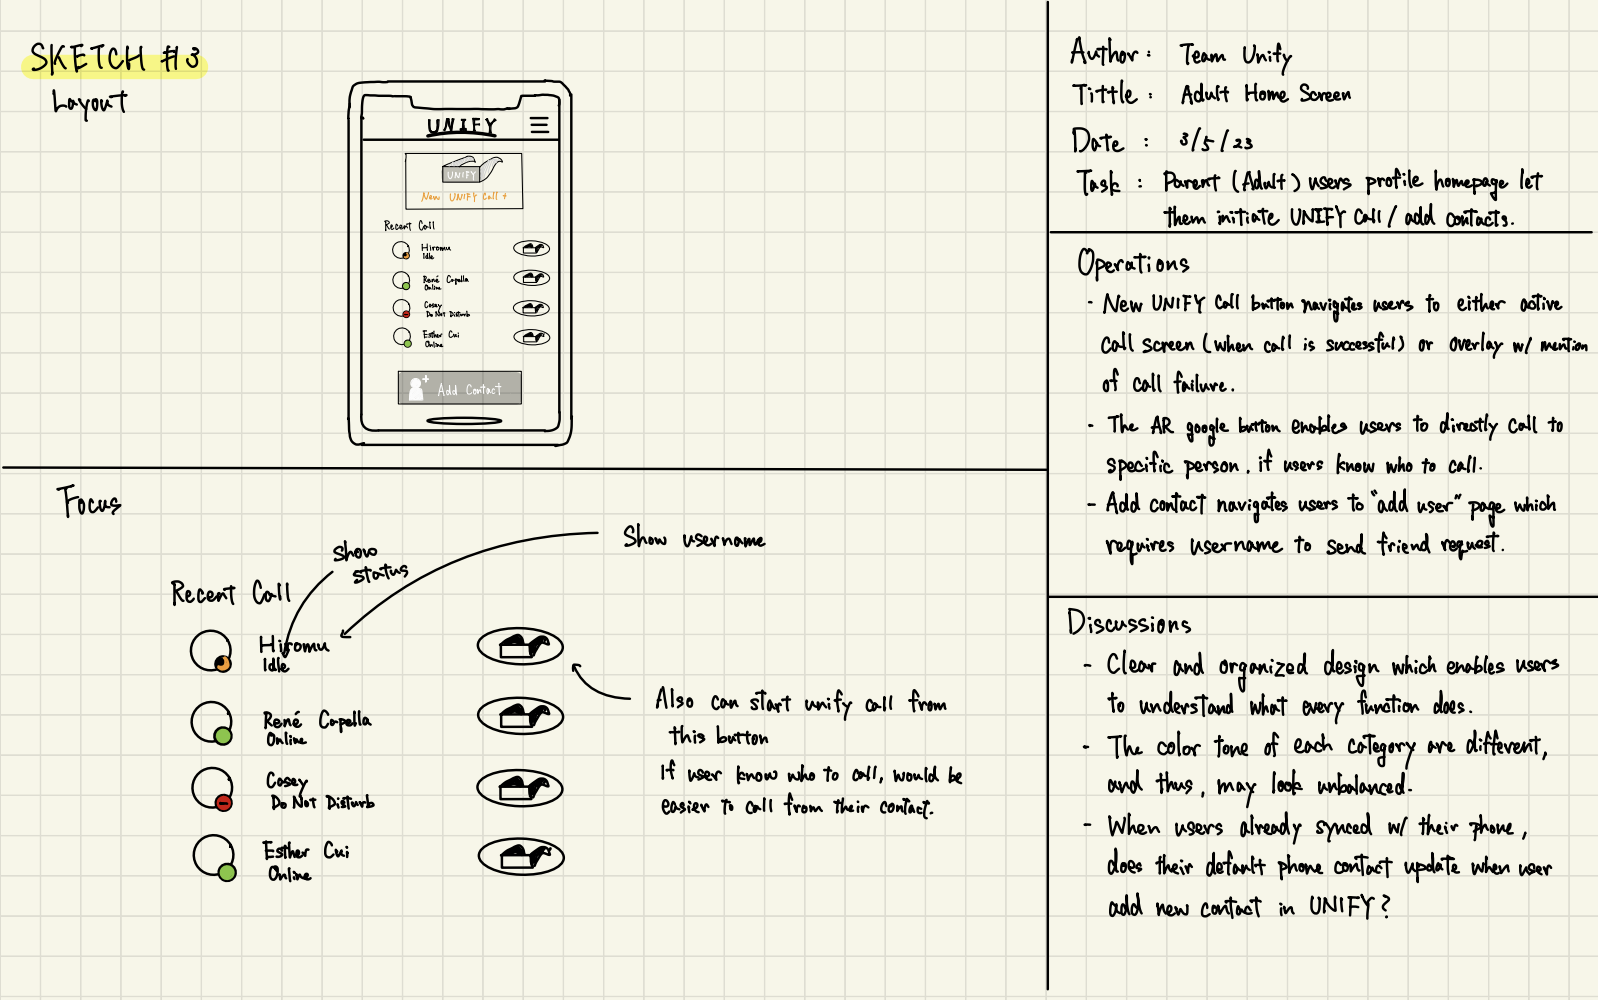 SKETCH #3
Layout
UNIFY
UNIFY
New UNIFY Call +
Recent Call
Hiromu
Idle
René Capella
Online
Casey
Do Not Disturb
Esther Cui
Online
Add Contact
Focus
Show
status
Show username
Recent Call
Hiromu
Idle
René Capella
Online
Casey
Do Not Disturb
Esther Cui
Online
Also can start unify call from
this button
If user know who to call, would be
easier to call from their contact.
Author : Team Unify
Tittle : Adult Home Screen
Date : 3/5/23
Task : Parent (Adult) users profile homepage let
them initiate UNIFY Call / add contacts.
Operations
- New UNIFY Call button navigates users to either active
call screen (when call is successful) or overlay w/ mention
of call failure.
- The AR google button enables users to directly call to
specific person, if users know who to call.
- Add contact navigates users to "add user" page which
requires username to send friend request.
Discussions
- Clear and organized design which enables users
to understand what every function does.
- The color tone of each category are different,
and thus, may look unbalanced.
- When users already synced w/ their phone,
does their default phone contact update when user
add new contact in UNIFY?